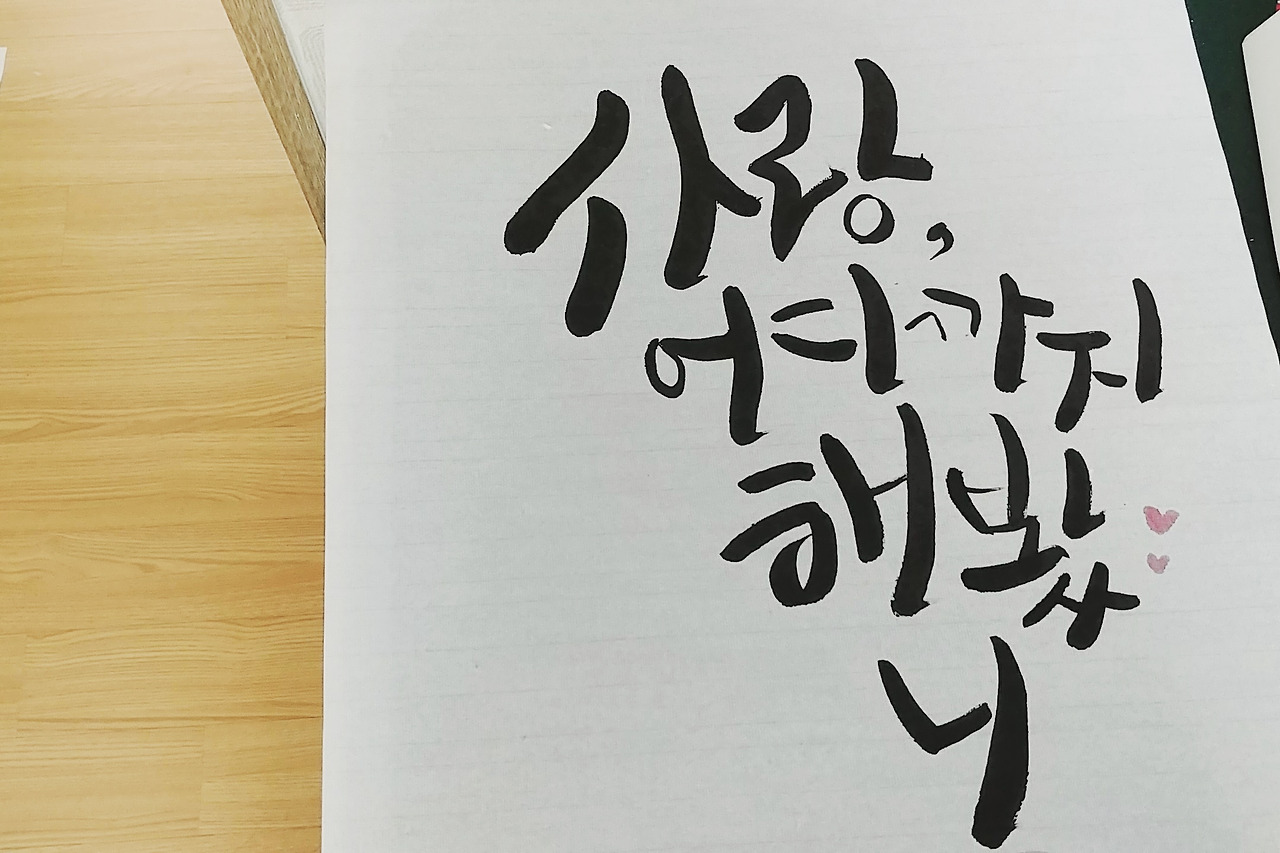 사랑,
어디까지
해봤
니